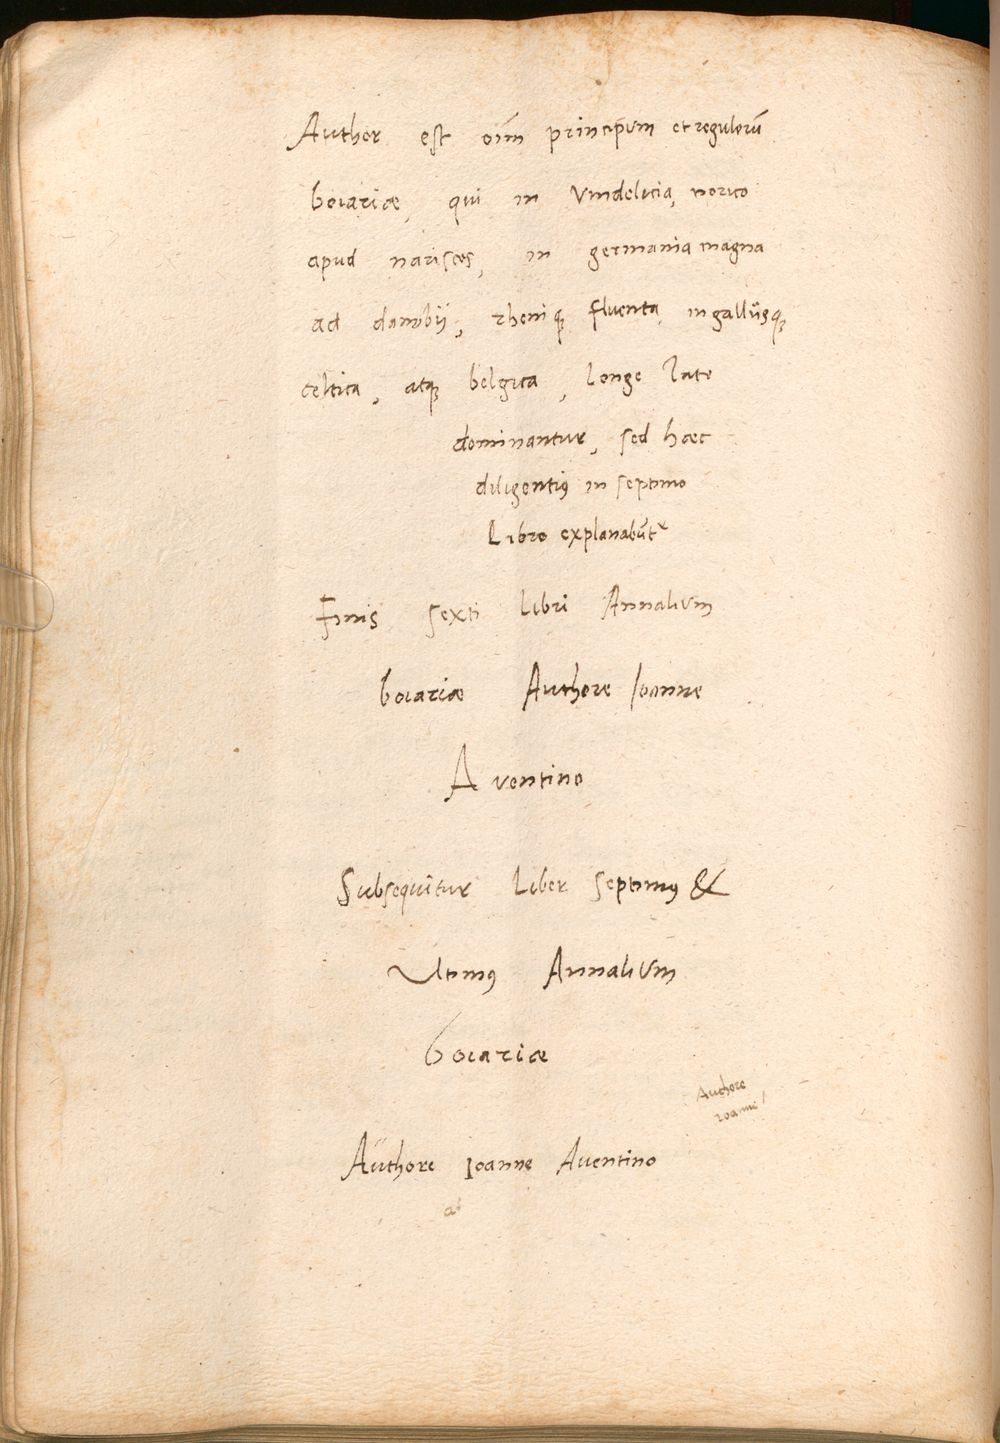 Author est oim̄ principum et regulorū
boiariæ, qui in Vindelicia, norico
apud nariscos, in germania magna
ad danubij, rheniq; fluenta, in gallijsq;
celtica, atq; belgica, longe late
dominantur, sed hæc
diligentiꝰ in septimo
Libro explanabūtr
Finis sexti libri Annalium
boiariæ Authore Ioanne
Aventino
Subsequitur Liber septimꝰ &
Vltimꝰ Annalium
boiariæ
Authore
Ioanne
Authore Ioanne Aventino